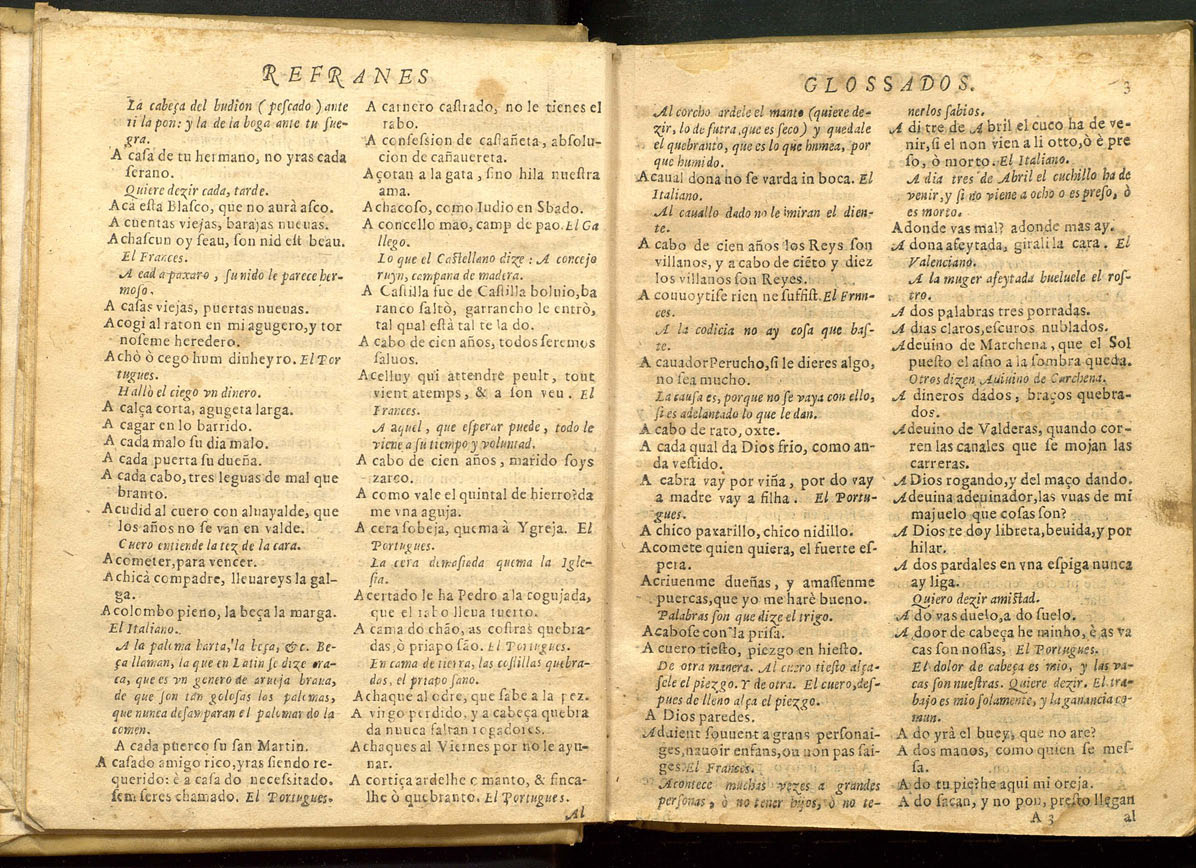 REFRANES
La cabeça del budion (pescado) ante
ti la pon: y la de la boga ante tu sue-
gra.
A casa de tu hermano, no yras cada
serano.
Quiere dezir cada, tarde.
Acà esta Blasco, que no aurà asco.
A cuentas viejas, barajas nueuas.
Achascun oyseau, son nid est beau.
El Frances.
A cad a paxaro, su nido le parece her-
moso.
A casas viejas, puertas nueuas.
Acogi al raton en mi agugero, y tor
noseme heredero.
Achò ò cego hum dinheyro. El Por
tugues.
Hallò el ciego vn dinero.
A calça corta, agugeta larga.
A cagar en lo barrido.
A cada malo su dia malo.
A cada puerta su dueña.
A cada cabo, tres leguas de mal que
branto.
Acudid al cuero con aluayalde, que
los años no se van en valde.
Cuero entiende la tez de la cara.
Acometer, para vencer.
Achicà compadre, lleuareys la gal-
ga.
Acolombo pieno, la beça la marga.
El Italiano.
A la paloma harta, la beça, &c. Be-
ça llaman, la que en Latin se dize ora-
ca, que es vn genero de arueja braua,
de que son tan golosas las palomas,
que nunca desamparan el palomar do la
comen.
A cada puerco su san Martin.
A casado amigo rico, yras siendo re-
querido: è a casa do necessitado.
sem seres chamado. El Portugues.
A carnero castrado, no le tienes el
rabo.
A confession de castañeta, absolu-
cion de cañauereta.
Açotan a la gata, sino hila nuestra
ama.
Achacoso, como Iudio en Sbado.
A concello mao, camp de pao. El Ga
llego.
Lo que el Castellano dize: A concejo
ruyn, campana de madera.
A Castilla fue de Castilla boluio, ba
ranco saltò, garrancho le entrò,
tal qual està tal te la do.
A cabo de cien años, todos seremos
saluos.
Acelluy qui attendre peult, tout
vient atemps, & a son veu. El
Frances.
A aquel, que esperar puede, todo le
viene a su tiempo y voluntad.
A cabo de cien años, marido soys
zarco.
A como vale el quintal de hierro? da
me vna aguja.
A cera sobeja, quema à Ygreja. El
Portugues.
La cera demasiada quema la Igle-
sia.
Acertado le ha Pedro a la cogujada,
que el rabo lleua tuerto.
A cama do chão, as costras quebra-
das, ò priapo são. El Portugues.
En cama de tierra, las costillas quebra-
dos, el priapo sano.
Achaque al odre, que sabe a la pez.
A virgo perdido, y a cabeça quebra
da nuuca faltan rogadores.
Achaques al Viernes por no le ayu-
nar.
A cortiça ardelhe o manto, & finca-
lhe ò quebranto. El Portugues.
Al
GLOSSADOS. 3
Al corcho ardele el manto (quiere de-
zir, lo de futra, que es seco) y quedale
el quebranto, que es lo que humea, por
que humido.
Acaual dona no se varda in boca. El
Italiano.
Al cauallo dado no le miran el dien-
te.
A cabo de cien años los Reys son
villanos, y a cabo de ciẽto y diez
los villanos son Reyes.
A conuoytise rien ne suffist. El Fran-
ces.
A la codicia no ay cosa que bas-
te.
A cauador Perucho, si le dieres algo,
no sea mucho.
La causa es, porque no se vaya con ello,
si es adelantado lo que le dan.
A cabo de rato, oxte.
A cada qual da Dios frio, como an-
da vestido.
A cabra vay por viña, por do vay
a madre vay a filha. El Portu-
gues.
A chico paxarillo, chico nidillo.
Acomete quien quiera, el fuerte es-
pera.
Acriuenme dueñas, y amassenme
puercas, que yo me harè bueno.
Palabras son que dize el trigo.
Acabose con la prisa.
A cuero tiesto, piezgo en hiesto.
De otra manera. Al cuero tiesto alça-
sele el piezgo. Y de otra. El cuero, des-
pues de lleno alça el piezgo.
A Dios paredes.
Adaient souuent a grans personai-
ges, nauoir enfans, ou non pas sai-
ges. El Frances.
Acontece muchas vezes a grandes
personas, ò no tener hijos, ò no te-
nerlos sabios.
A di tre de Abril el cuco ha de ve-
nir, si el non vien a li otto, ò è pre
so, ò morto. El Italiano.
A dia tres de Abril el cuchillo ha de
venir, y si no viene a ocho o es preso, ò
es morto.
Adonde vas mal? adonde mas ay.
A dona afeytada, girali la cara. El
Valenciano.
A la muger afeytada bueluele el ros-
tro.
A dos palabras tres porradas.
A dias claros, escuros nublados.
Adeuino de Marchena, que el Sol
puesto el asno a la sombra queda.
Otros dizen Auiuino de Carchena.
A dineros dados, braços quebra-
dos.
Adeuino de Valderas, quando cor-
ren las canales que se mojan las
carreras.
A Dios rogando, y del maço dando.
Adeuina adeuinador, las vuas de mi
majuelo que cosas son?
A Dios te doy libreta, beuida, y por
hilar.
A dos pardales en vna espiga nunca
ay liga.
Quiero dezir amistad.
A do vas duelo, a do suelo.
A door de cabeça he minho, è as va
cas son nossas, El Portugues.
El dolor de cabeça es mio, y las va-
cas son nuestras. Quiere dezir. El tra-
bajo es mio solamente, y la ganancia co-
mun.
A do yrà el buey, que no are?
A dos manos, como quien se mes-
sa.
A do tu pie? he aqui mi oreja.
A do sacan, y no pon, presto llegan
A 3 al